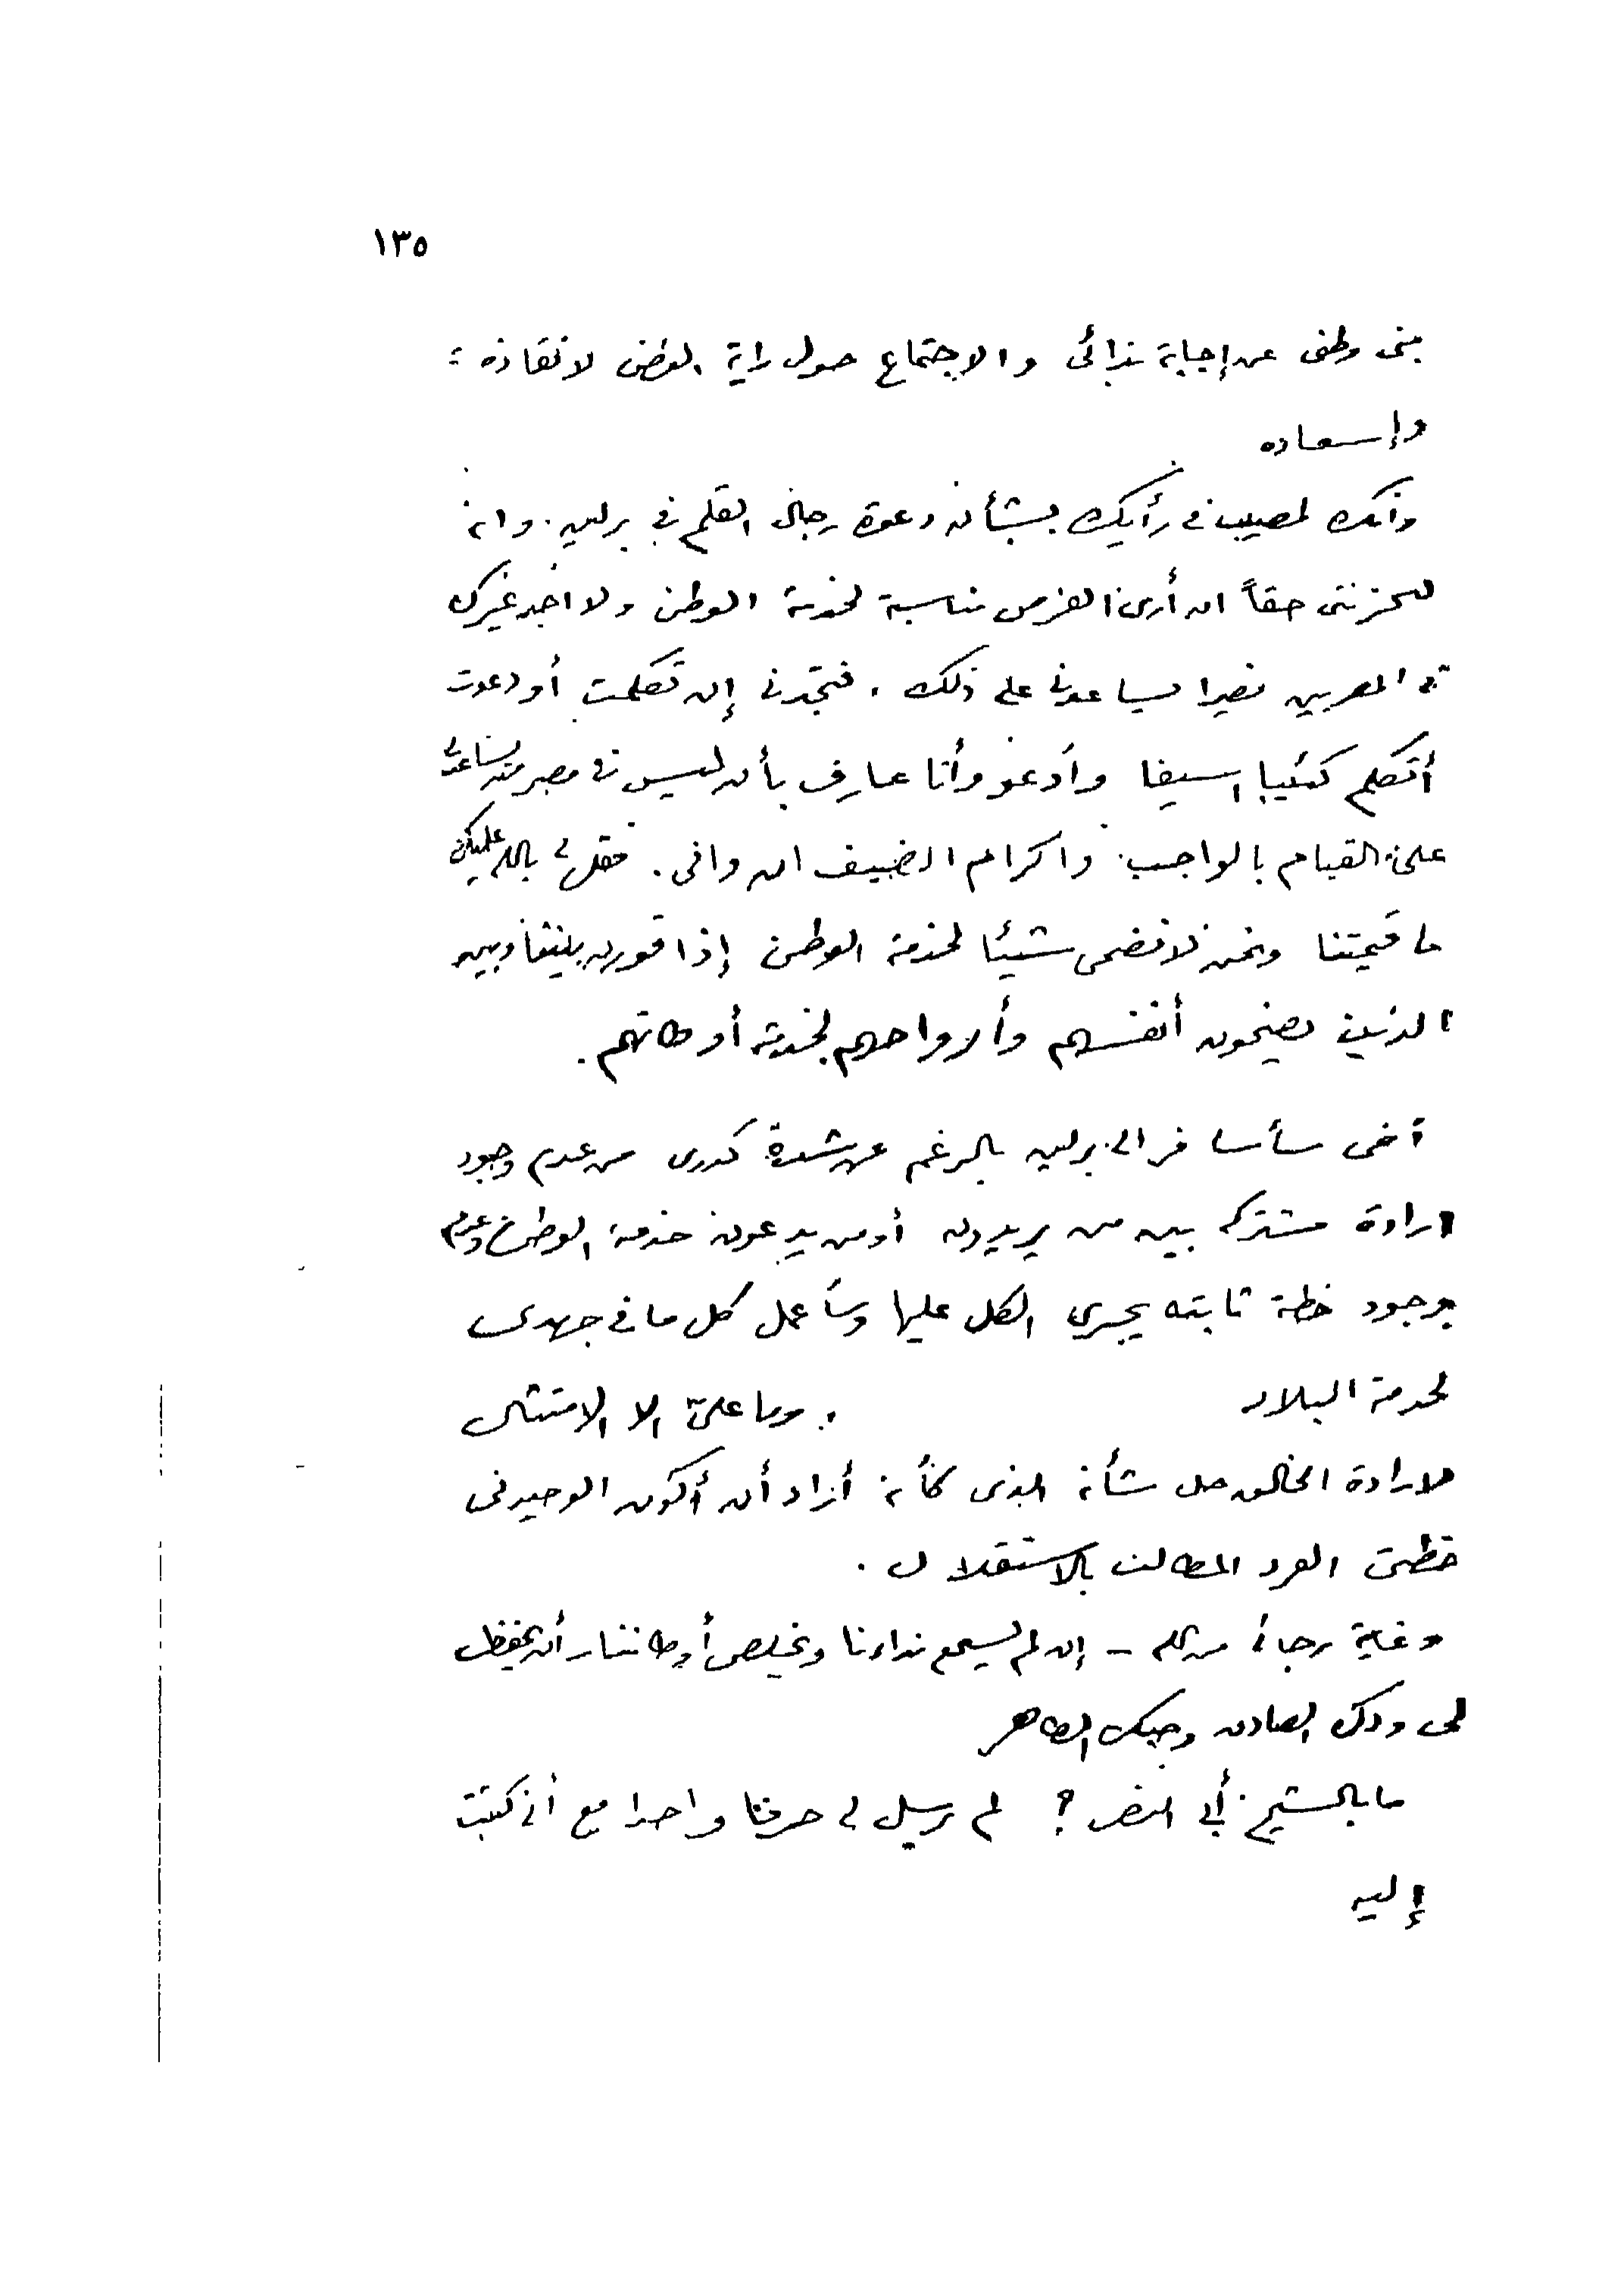 ١٣٥
بنى وطنى عن إجابة ندائى والاجتماع حول راية الوطن لانقاذه
وإسعاده
وانك لمصيب فى رأيك بشأن دعوة رجال القلم فى برلين. وانه
ليحزننى حقاً ان أرى الفرص مناسبة لخدمة الوطن ولا أجد غيرك
من المصريين نصيرا يساعدنى على ذلك. فتجدنى إن تكلمت أو دعوت
أتكلم كئيبا اسيفا وأدعو وأنا عارف بأن ليس فى مصر من يساعدنى
على القيام بالواجب واكرام الضيف ان وافى. فقل لى بالله عليك
ما قيمتنا ونحن لا نضحى شيئا لخدمة الوطن إذا قورن بيننا وبين
الذين يضحون أنفسهم وأرواحهم لخدمة أوطانهم.
أخى سأسافر الى برلين بالرغم عن شدة كدرى من عدم وجود
ارادة مشتركه بين من يريدون أو من يدعون خدمة الوطن وعدم
وجود خطة ثابته يجرى الكل عليها وسأعمل كل ما فى جهدى
لخدمة البلاد . وما علىّ الا الامتثال
لارادة الخالق جل شأنه الذى كأنه أراد أن أكون الوحيد فى
خطتى الفرد المطالب بالاستقلال.
وغاية رجائى من الله - إن لم يسمع نداءنا ويخلص أوطاننا - أن يحفظ
لى ودك الصادق وحبك الطاهر
ما بال الشيخ أبى النصر؟ لم يرسل لى حرفا واحدا مع أنى كتبت
إليه